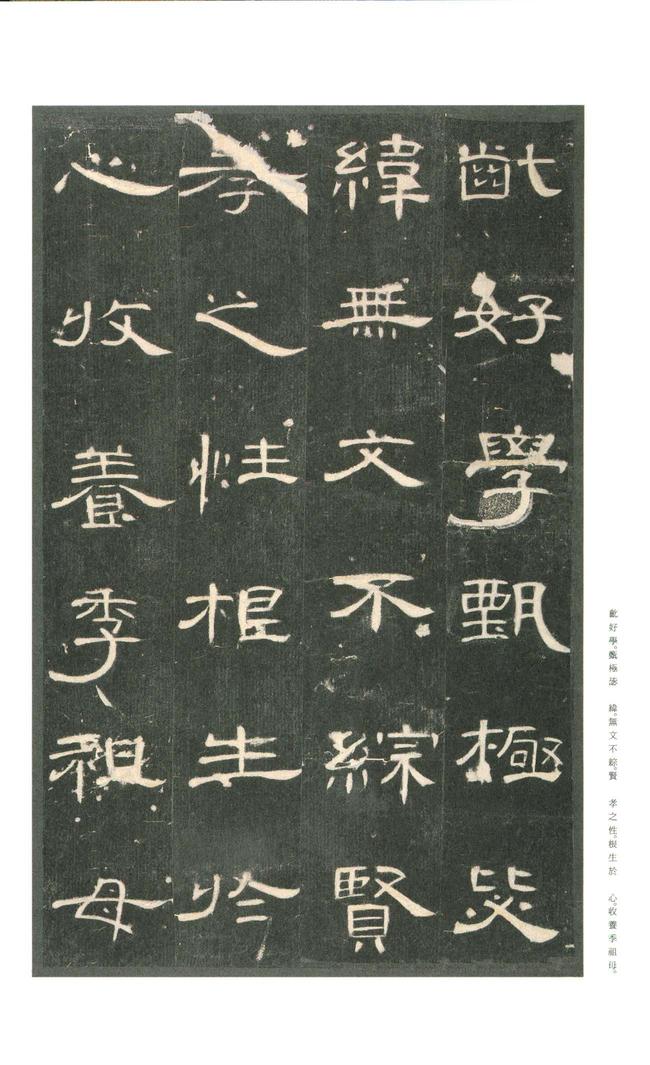 齔好學甄極毖
緯無文不綜賢
孝之性根生於
心收養季祖母
齔好學。甄極毖　緯。無文不綜。賢　孝之性。根生於　心。收養季祖母。